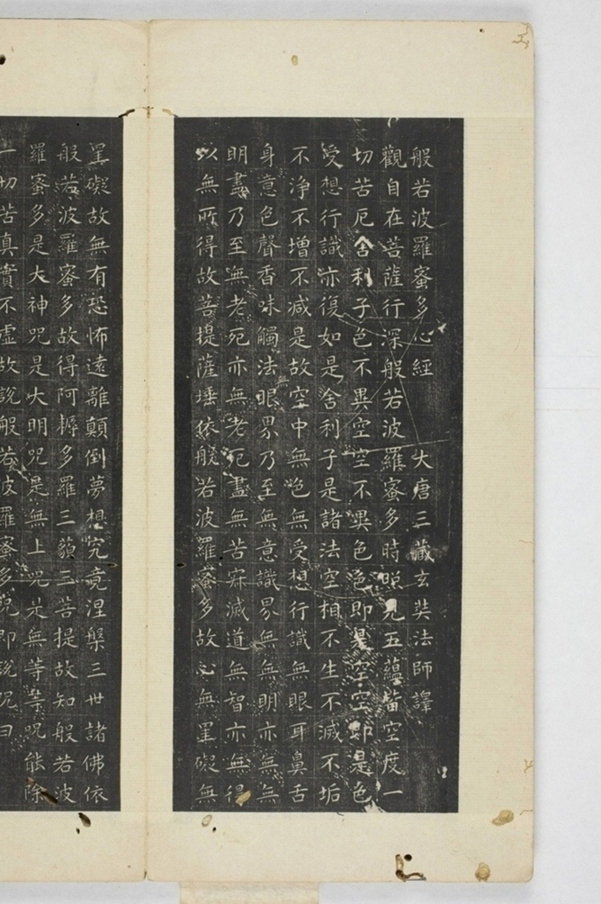 般若波羅蜜多心經 大唐三藏玄奘法師譯
觀自在菩薩行深般若波羅蜜多時照見五蘊皆空度一
切苦厄舍利子色不異空空不異色色即是空空即是色
受想行識亦復如是舍利子是諸法空相不生不滅不垢
不淨不增不減是故空中無色無受想行識無眼耳鼻舌
身意色聲香味觸法眼界乃至無意識界無無明亦無無
明盡乃至無老死亦無老死盡無苦寂滅道無智亦無得
以無所得故菩提薩埵依般若波羅蜜多故心無罣礙無
罣礙故無有恐怖遠離顛倒夢想究竟涅槃三世諸佛依
般若波羅蜜多故得阿耨多羅三藐三菩提故知般若波
羅蜜多是大神咒是大明咒是無上咒是無等等咒能除
一切苦真實不虛故說般若波羅蜜多咒即說咒曰